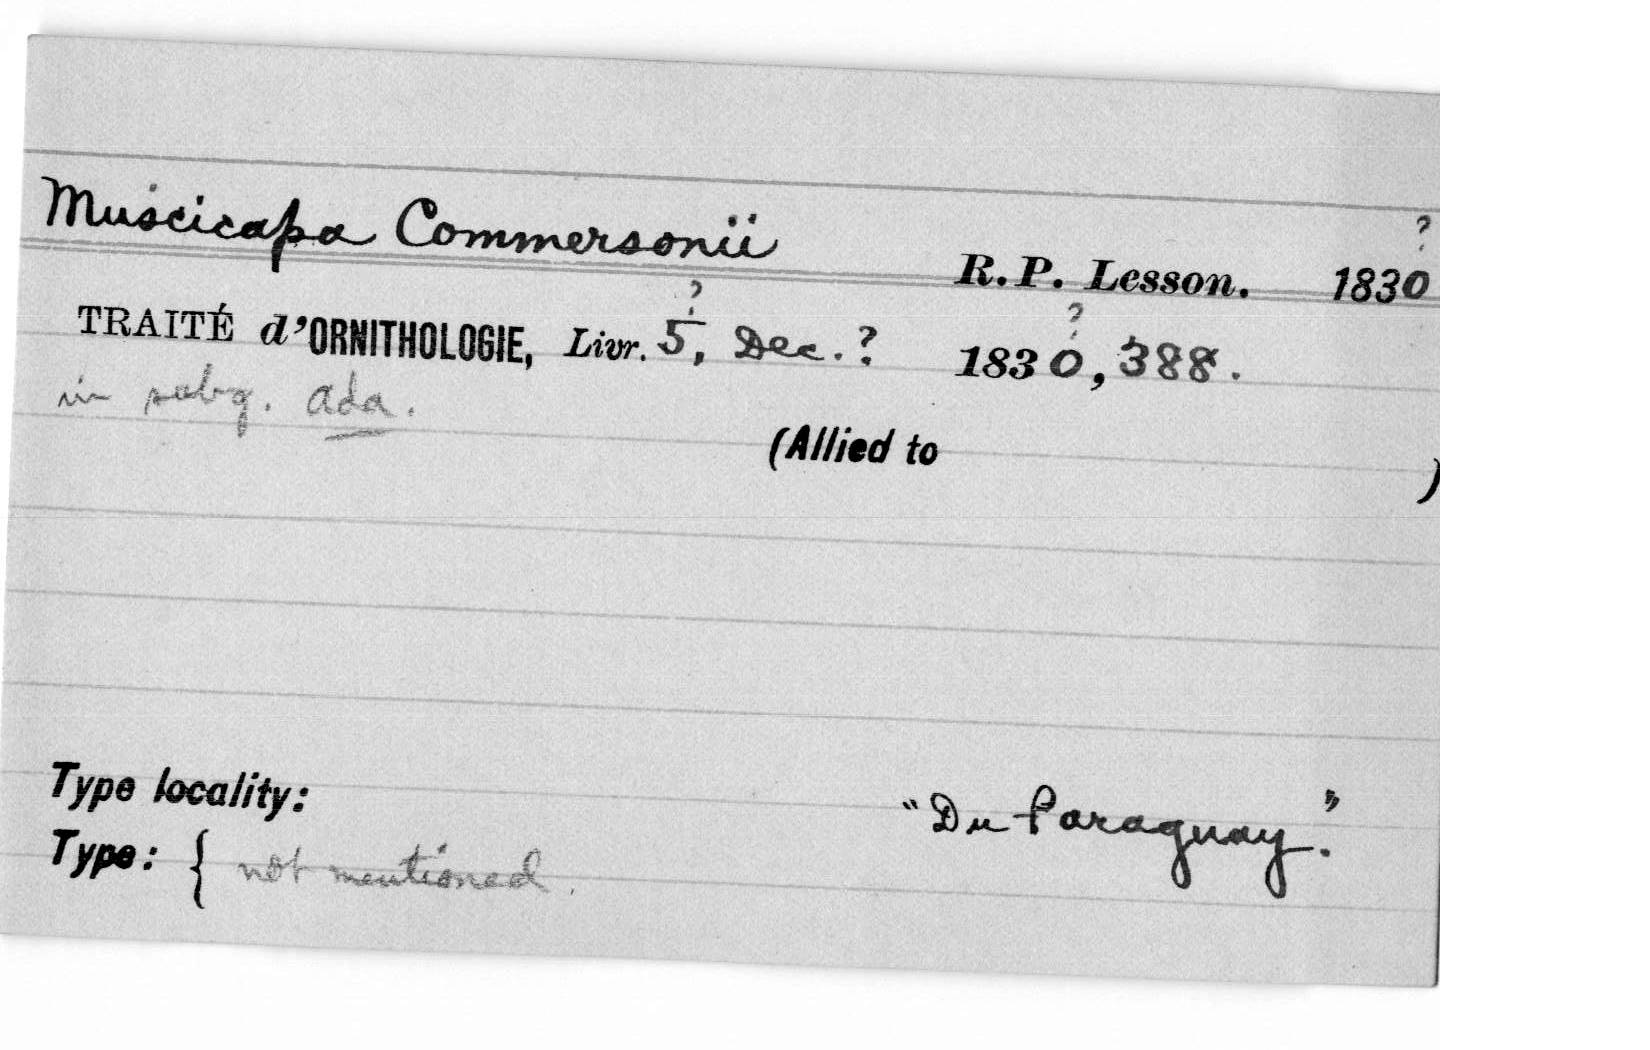 Muscicapa Commersonii R. P. Lesson. 1830?
TRAITÉ d'ORNITHOLOGIE, Livr. 5?, Dec.? 1830?, 388.
in subg. Ada.
(Allied to )
Type locality: "Du Paraguay."
Type: { not mentioned.